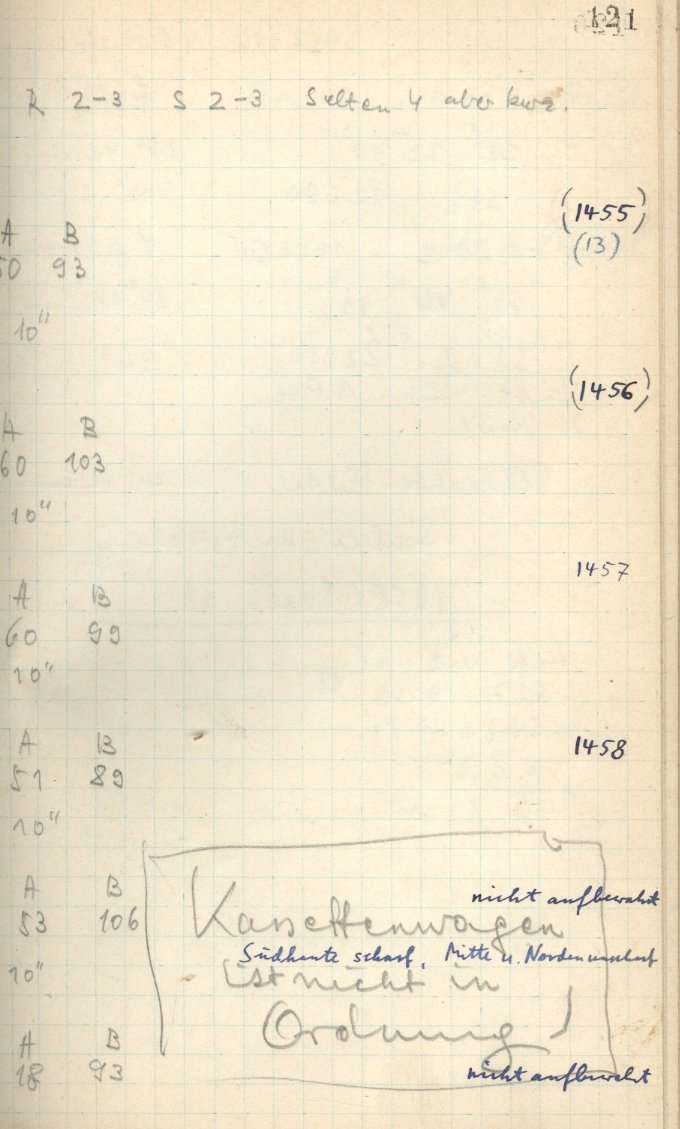 121
R 2-3 S 2-3 Selten 4 aber kurz.
(1455)
A B
50 93
(13)
10"
(1456)
A B
60 103
10"
1457
A B
60 99
10"
1458
A B
51 89
10"
A B
nicht aufbewahrt
53 106
Kassettenwagen
Südkante scharf, Mitte u. Norden unscharf
10"
ist nicht in
Ordnung!
A B
18 93
nicht aufbewahrt